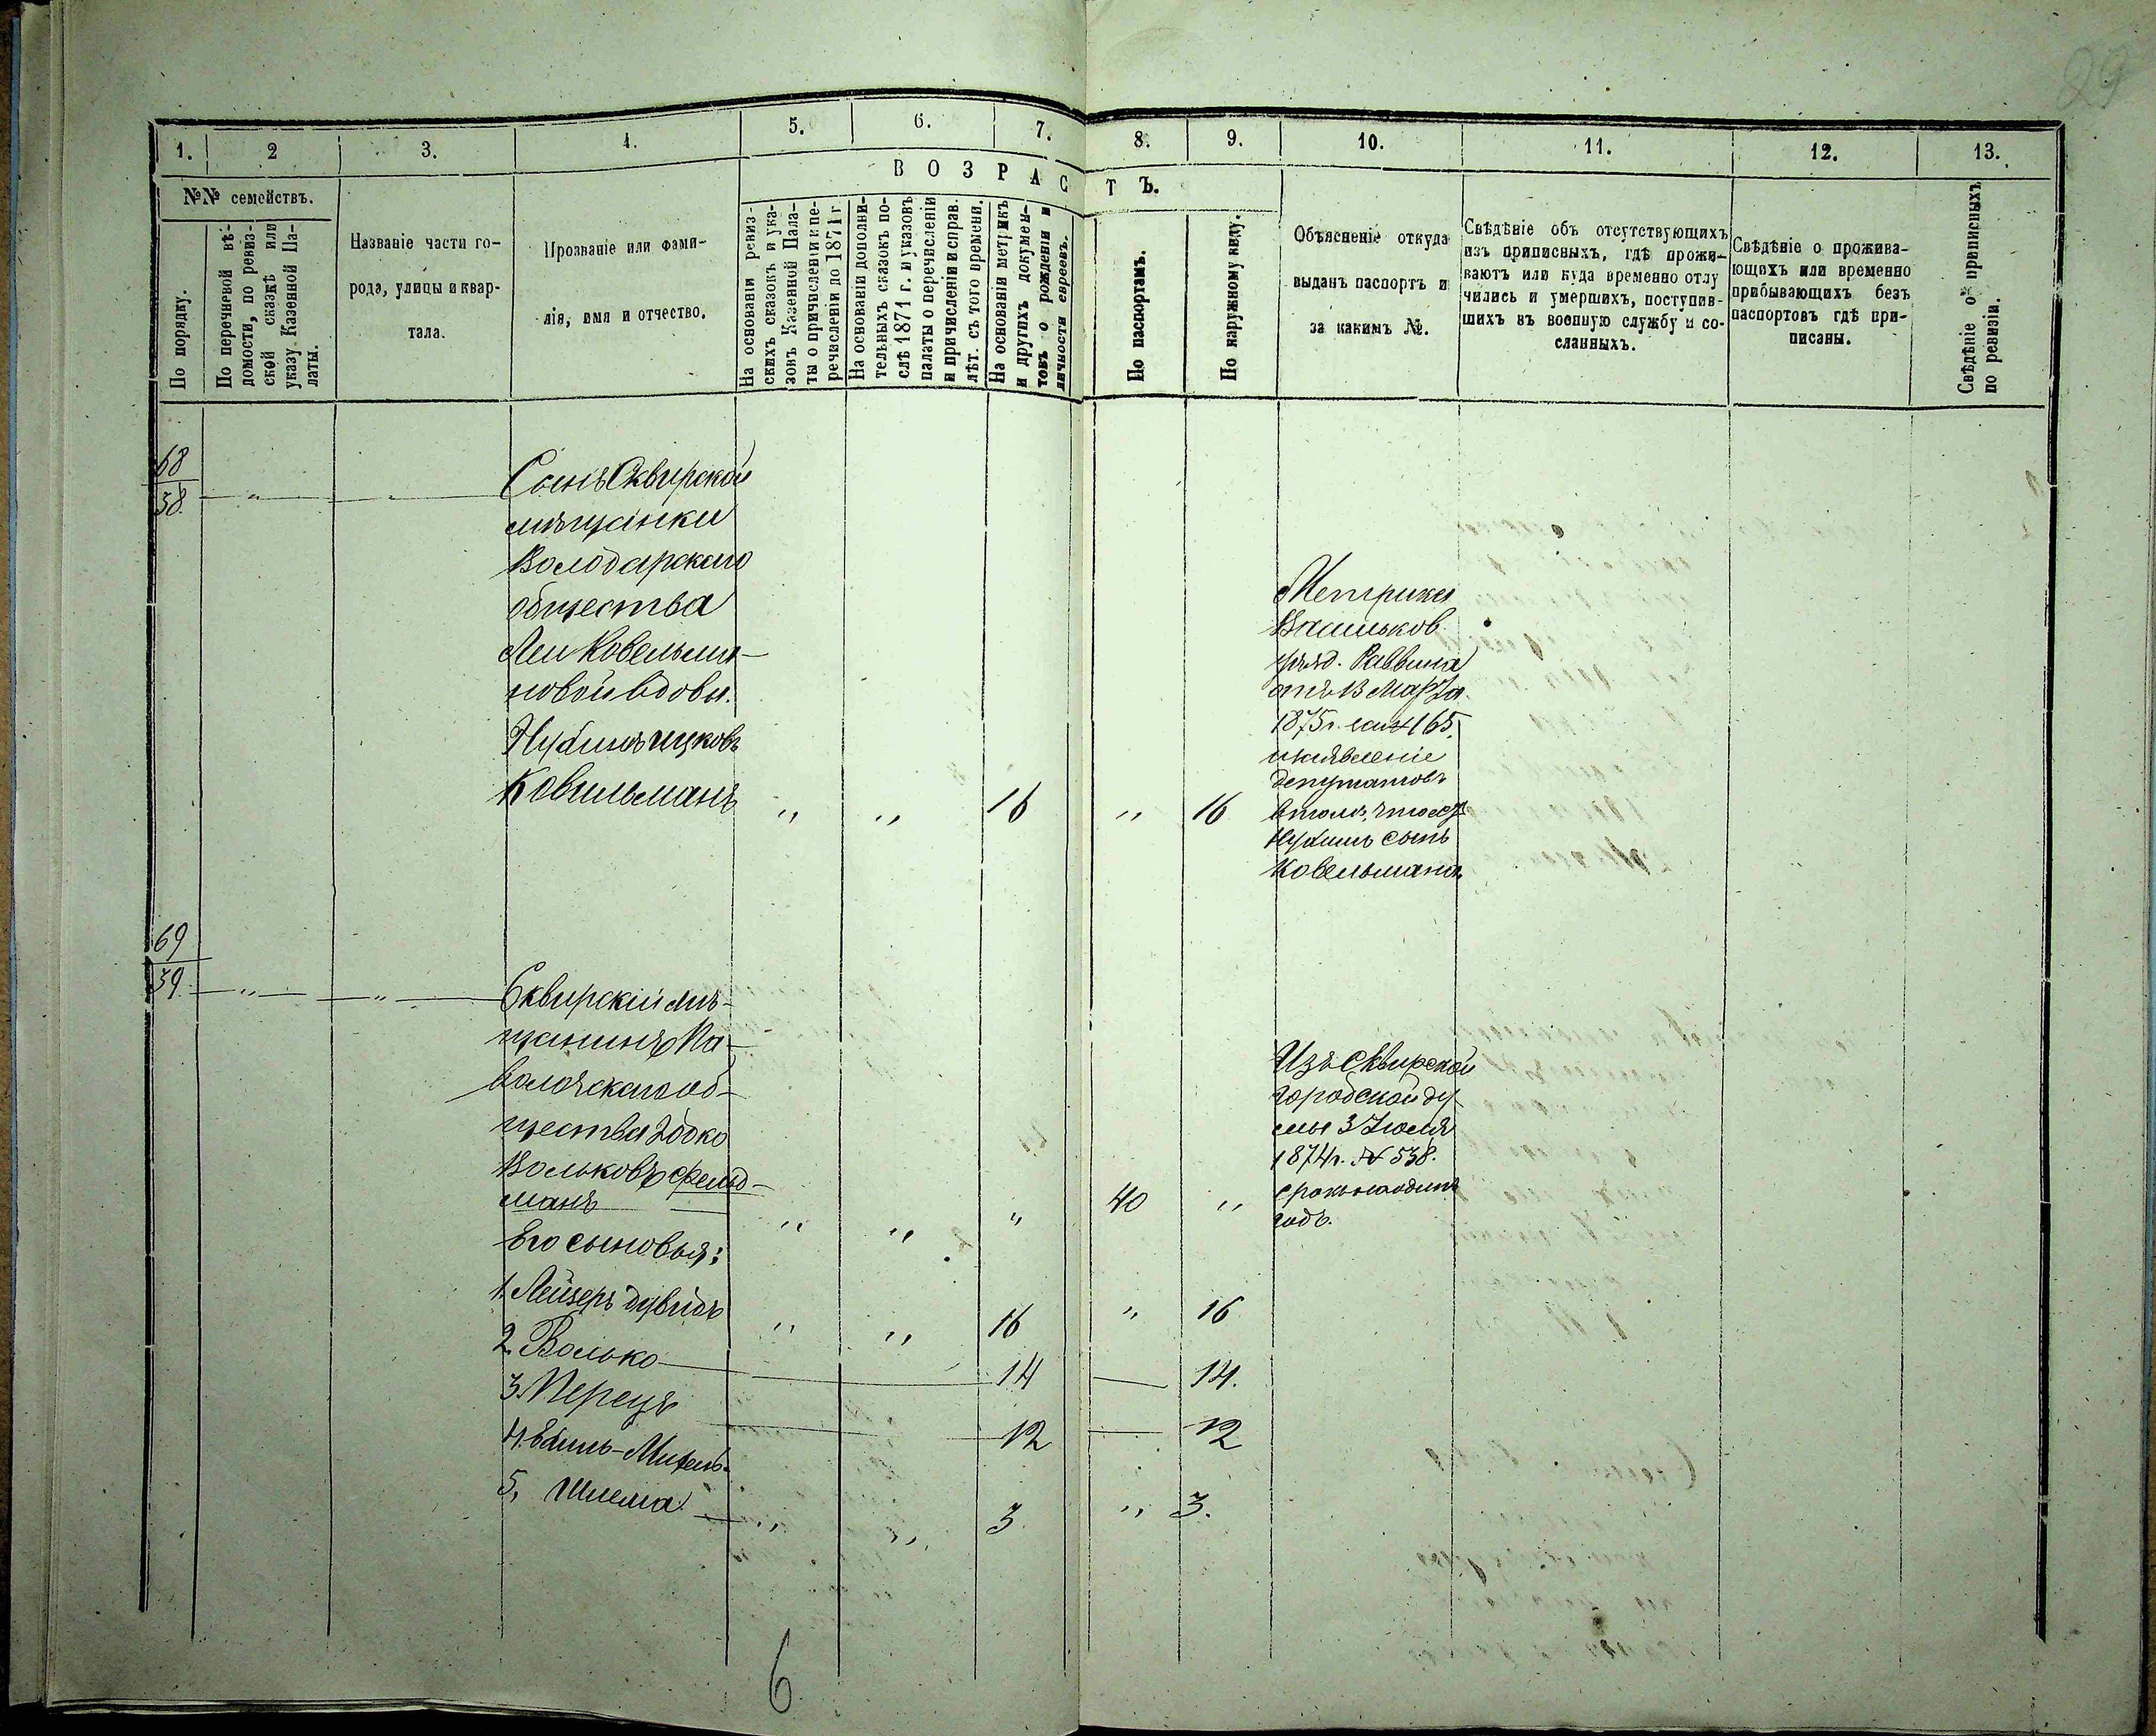 29
1. 2 3. 4. 5. 6. 7. 8. 9. 10. 11. 12. 13.
В О З Р А С Т Ъ.
№№ семействъ.
По порядку.
По перечневой вѣ-
домости, по ревиз-
ской сказкѣ или
указу Казенной Па-
латы.
Названіе части го-
рода, улицы и квар-
тала.
Прозваніе или фами-
лія, имя и отчество.
На основаніи ревиз-
скихъ сказокъ и ука-
зовъ Казенной Пала-
ты о причисленіи и пе-
речисленіи до 1871 г.
На основаніи дополни-
тельныхъ сказокъ по-
слѣ 1871 г. и указовъ
палаты о перечисленіи
и причисленіи и справ.
лѣт. съ того времени.
На основаніи метрикъ
и другихъ докумен-
товъ о рожденіи и
личности евреевъ.
По паспортамъ.
По наружному виду.
Объясненіе откуда
выданъ паспортъ и
за какимъ №.
Свѣдѣніе объ отсутствующихъ
изъ приписныхъ, гдѣ прожи-
ваютъ или куда временно отлу
чились и умершихъ, поступив-
шихъ въ военную службу и со-
сланныхъ.
Свѣдѣніе о прожива-
ющихъ или временно
прибывающихъ безъ
паспортовъ гдѣ при-
писаны.
Свѣдѣніе о приписныхъ
по ревизіи.
68
38.
Сынъ Сквирской
мѣщанки
Володарскаго
общества
Леи Ковельма-
новой вдовы.
Нухимъ Ицковъ
Ковильманъ " " 16 " 16
Метрика
Васильков.
уѣзд. Раввина
отъ 13 Марта
1875 г. за № 165.
и заявленіе
депутатовъ
втомъ, что
Нухимъ сынъ
Ковельмана
69
39. " "
Сквирскій мѣ-
щанинъ Па-
волочскаго об-
щества Іодко
Вольковъ Фельд-
манъ " " " 40 "
Изъ Сквирской
городской ду
мы 3 Іюля
1874 г. № 538.
срокъ на одинъ
годъ.
Его сыновья:
1. Лейзеръ Дувидъ " " 16 " 16
2. Волько 14 14.
3. Перецъ 12 12
4. Ехиль-Михель
5, Шлема " " 3 " 3.
6